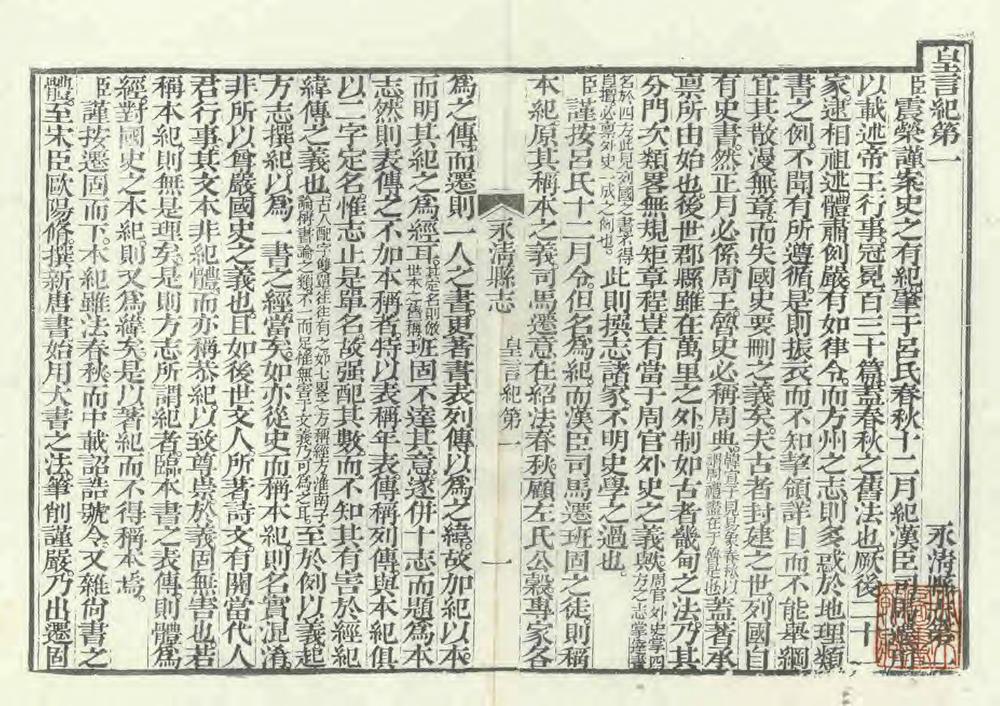 皇言紀第一
永清縣志第一
臣震榮謹案史之有紀肇于呂氏春秋十二月紀漢臣司馬遷用
以載述帝王行事冠冕百三十篇蓋春秋之舊法也厥後二十一
家遞相祖述體肅例嚴有如律令而方州之志則多惑於地理類
書之例不聞有所遵循是則振衣而不知挈領詳目而不能舉綱
宜其散漫無章而失國史要刪之義矣夫古者封建之世列國自
有史書然正月必係周王魯史必稱周典韓宣子見易象春秋以謂周禮盡在于魯是也蓋著承
禀所由始也後世郡縣雖在萬里之外制如古者畿甸之法乃其
分門次類畧無規矩章程豈有當于周官外史之義歟周官外史掌四方之志掌達書
名於四方此見列國之書不得自擅必禀外史一成之例也此則撰志諸家不明史學之過也
臣謹按呂氏十二月令但名爲紀而漢臣司馬遷班固之徒則稱
本紀原其稱本之義司馬遷意在紹法春秋顧左氏公穀專家各
永清縣志
皇言紀第一
一
爲之傳而遷則一人之書更著書表列傳以爲之緯故加紀以本
而明其紀之爲經耳其定名則倣世本之舊稱班固不達其意遂併十志而題爲本
志然則表傳之不加本稱者特以表稱年表傳稱列傳與本紀俱
以二字定名惟志止是單名故强配其數而不知其有害於經紀
緯傳之義也古人配字雙單往往有之如七略之方稱經方淮南子論稱書論之類不一而足惟無害于文義乃可爲之耳至於例以義起
方志撰紀以爲一書之經當矣如亦從史而稱本紀則名實混淆
非所以尊嚴國史之義也且如後世文人所著詩文有關當代人
君行事其文本非紀體而亦稱恭紀以致尊崇於義固無害也若
稱本紀則無是理矣是則方志所謂紀者臨本書之表傳則體爲
經對國史之本紀則又爲緯矣是以著紀而不得稱本焉
臣謹按遷固而下本紀雖法春秋而中載詔誥號令又雜尚書之
體至宋臣歐陽修撰新唐書始用大書之法筆削謹嚴乃出遷固